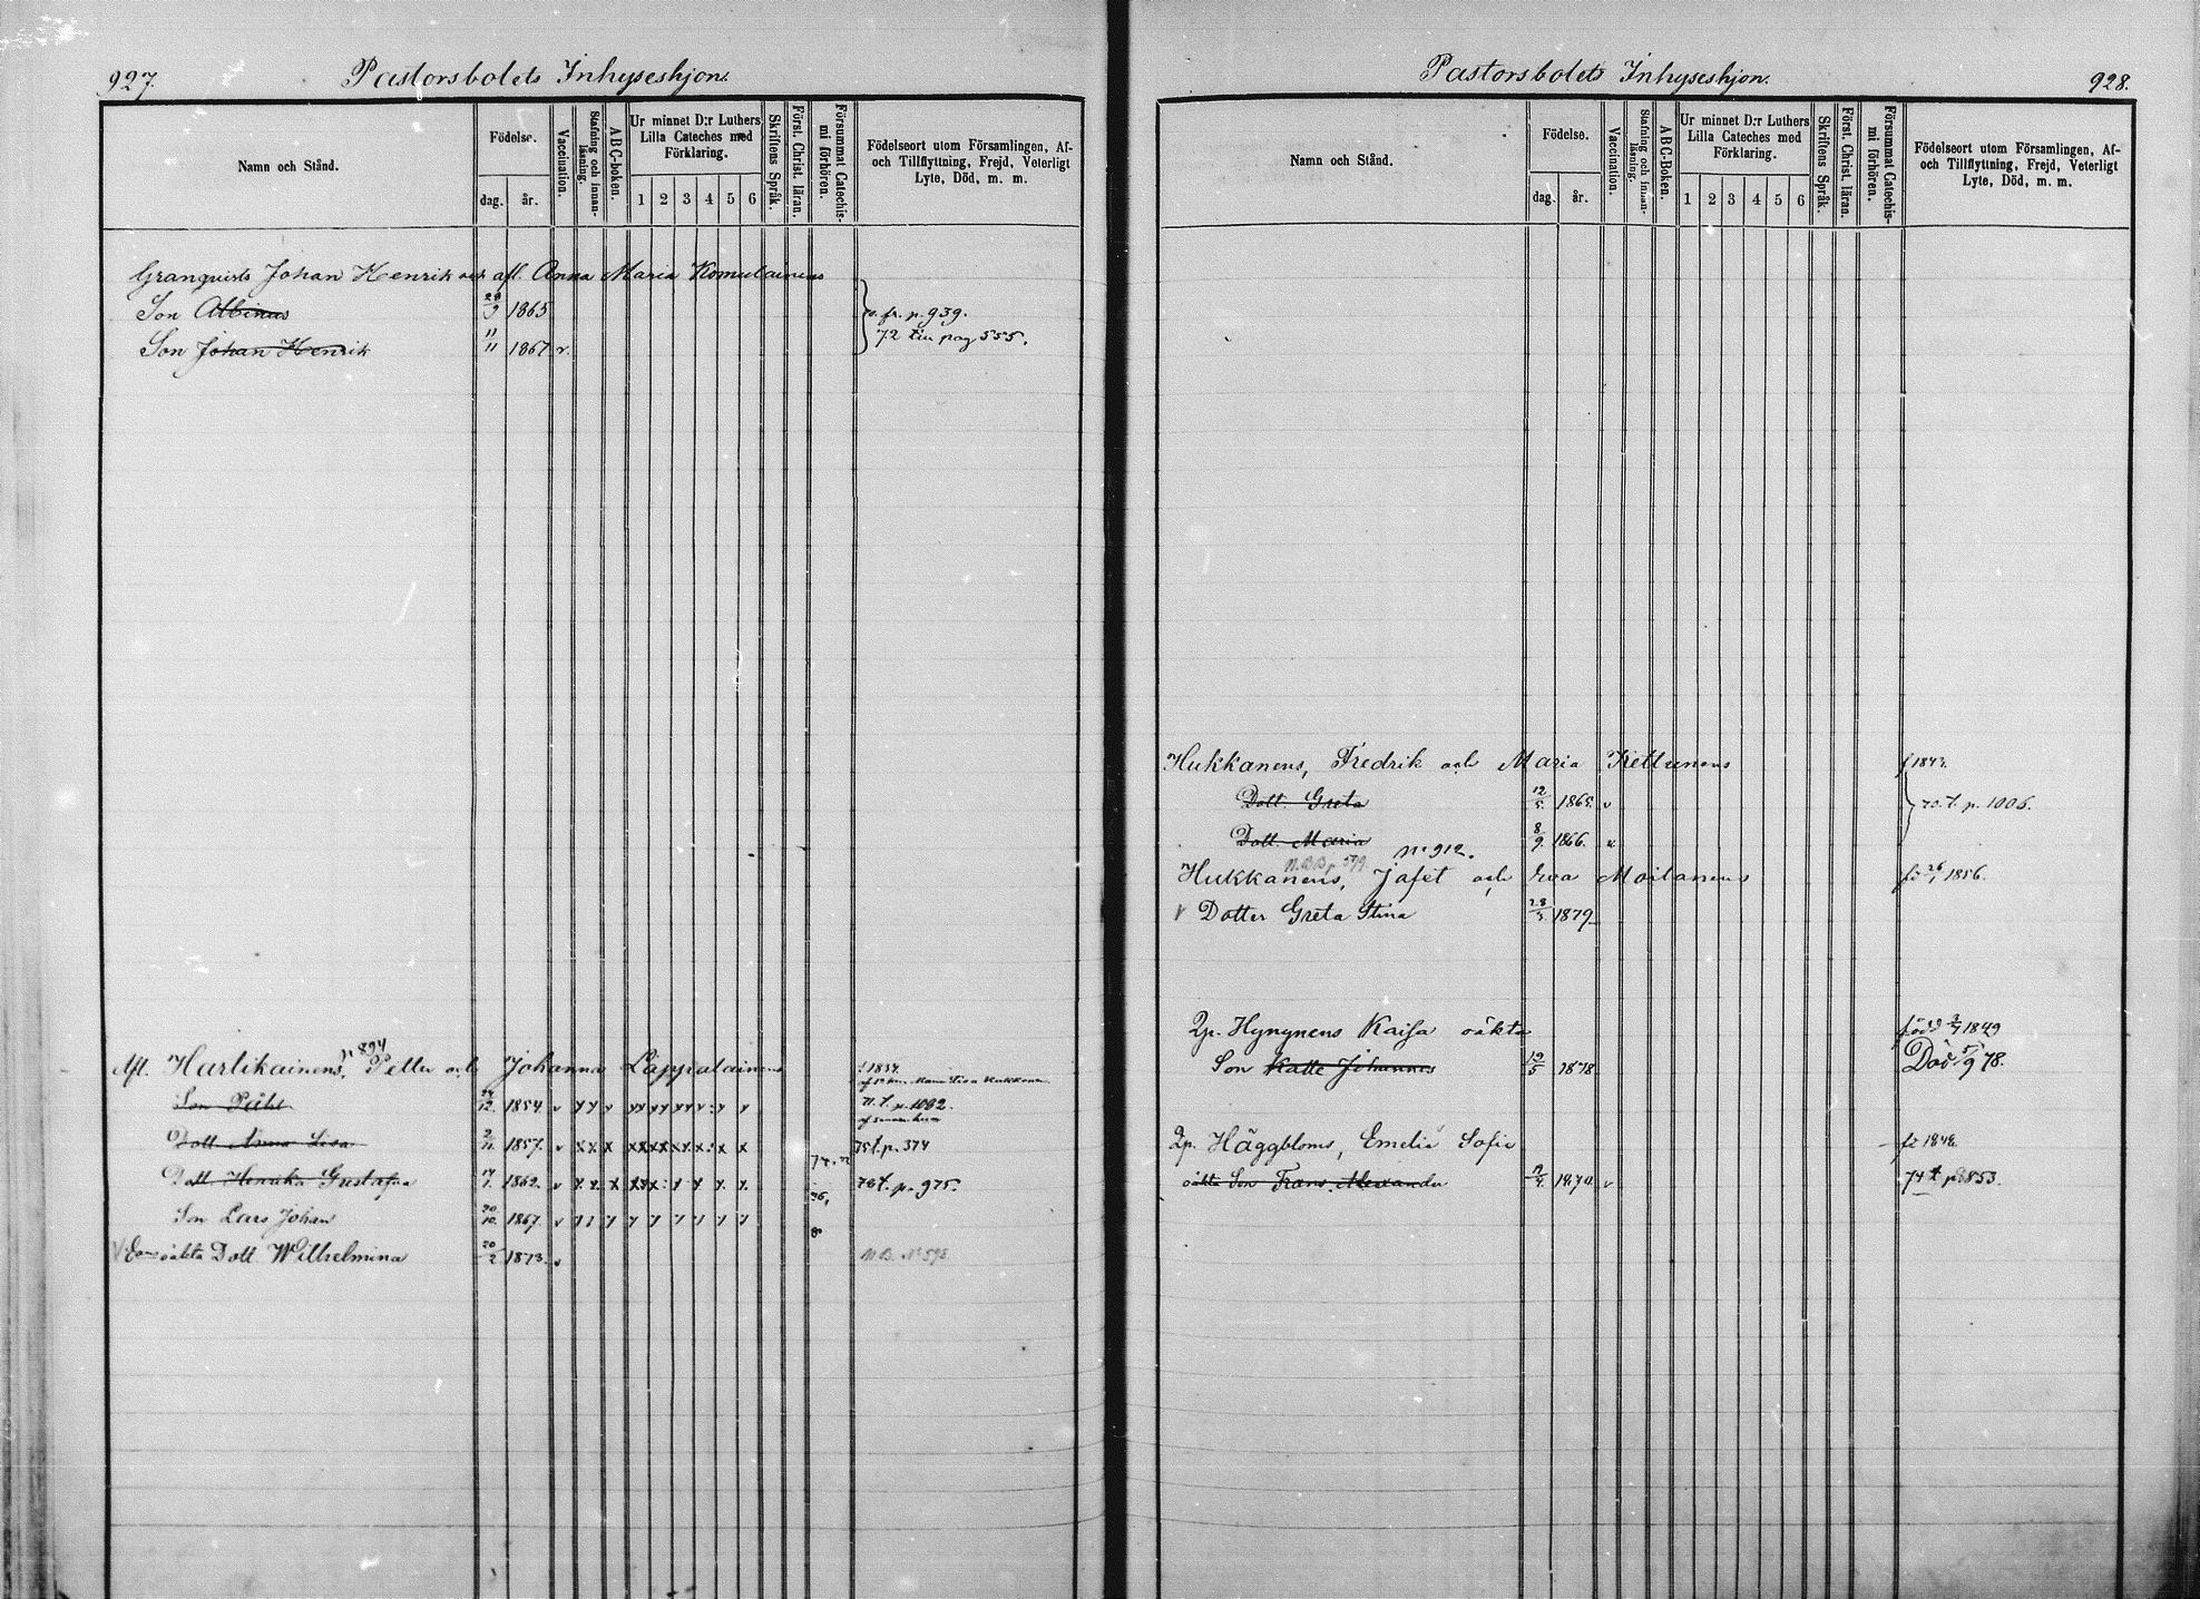 927.
Pastorsbolets Inhyseshjon.
Namn och Stånd.
Födelse.
dag.
år.
Vaccination.
Stafning och innanläsning.
ABC-boken.
Ur minnet D:r Luthers Lilla Cateches med Förklaring.
1 2 3 4 5 6
Skriftens Språk.
Först. Christ. läran.
Försummat Catechismi förhören.
Födelseort utom Församlingen, Af- och Tillflyttning, Frejd, Veterligt Lyte, Död, m. m.
Granqvists Johan Henrik och afl. Anna Maria Komulainens
Son Albinus 1865
fr. p. 939.
Son Johan Henrik 11/11 1867 v.
72 till pag 555.
Afl. Hartikainens, Petter och Johanna Lappalainens
p 894
Son Påhl 12. 1854 v
71. t. p. 1082.
Dott. Anna Lisa 11. 1857. v x x x x x x x x x x x
75 t. p. 374
Dott Henrika Gustafva 1862. v
78 t. p. 975.
Son Lars Johan 10. 1867. v
oäkta Dott. Wilhelmina 20/2 1873. v
N.B. N:o 598
928.
Pastorsbolets Inhyseshjon.
Namn och Stånd.
Födelse.
dag.
år.
Vaccination.
Stafning och innanläsning.
ABC-boken.
Ur minnet D:r Luthers Lilla Cateches med Förklaring.
1 2 3 4 5 6
Skriftens Språk.
Först. Christ. läran.
Försummat Catechismi förhören.
Födelseort utom Församlingen, Af- och Tillflyttning, Frejd, Veterligt Lyte, Död, m. m.
Hukkanens, Fredrik och Maria Kettunens f 1843.
Dott. Greta 12/5. 1865. v
t. p. 1006.
Dott. Maria 8/9. 1866. v.
p. 912.
Hukkanens, Jafet och Eva Moilanens fö 26/1 1856.
Dotter Greta Stina 28/3. 1879
Qp. Hynynens Kaisa oäkta
född 1849
Son Kalle Johannes 19/5 1878
Död 5/9 78.
Qp. Häggbloms, Emelia Sofia fö 1848.
oäkta Son Frans Alexander 1870. v
74 t p 853.